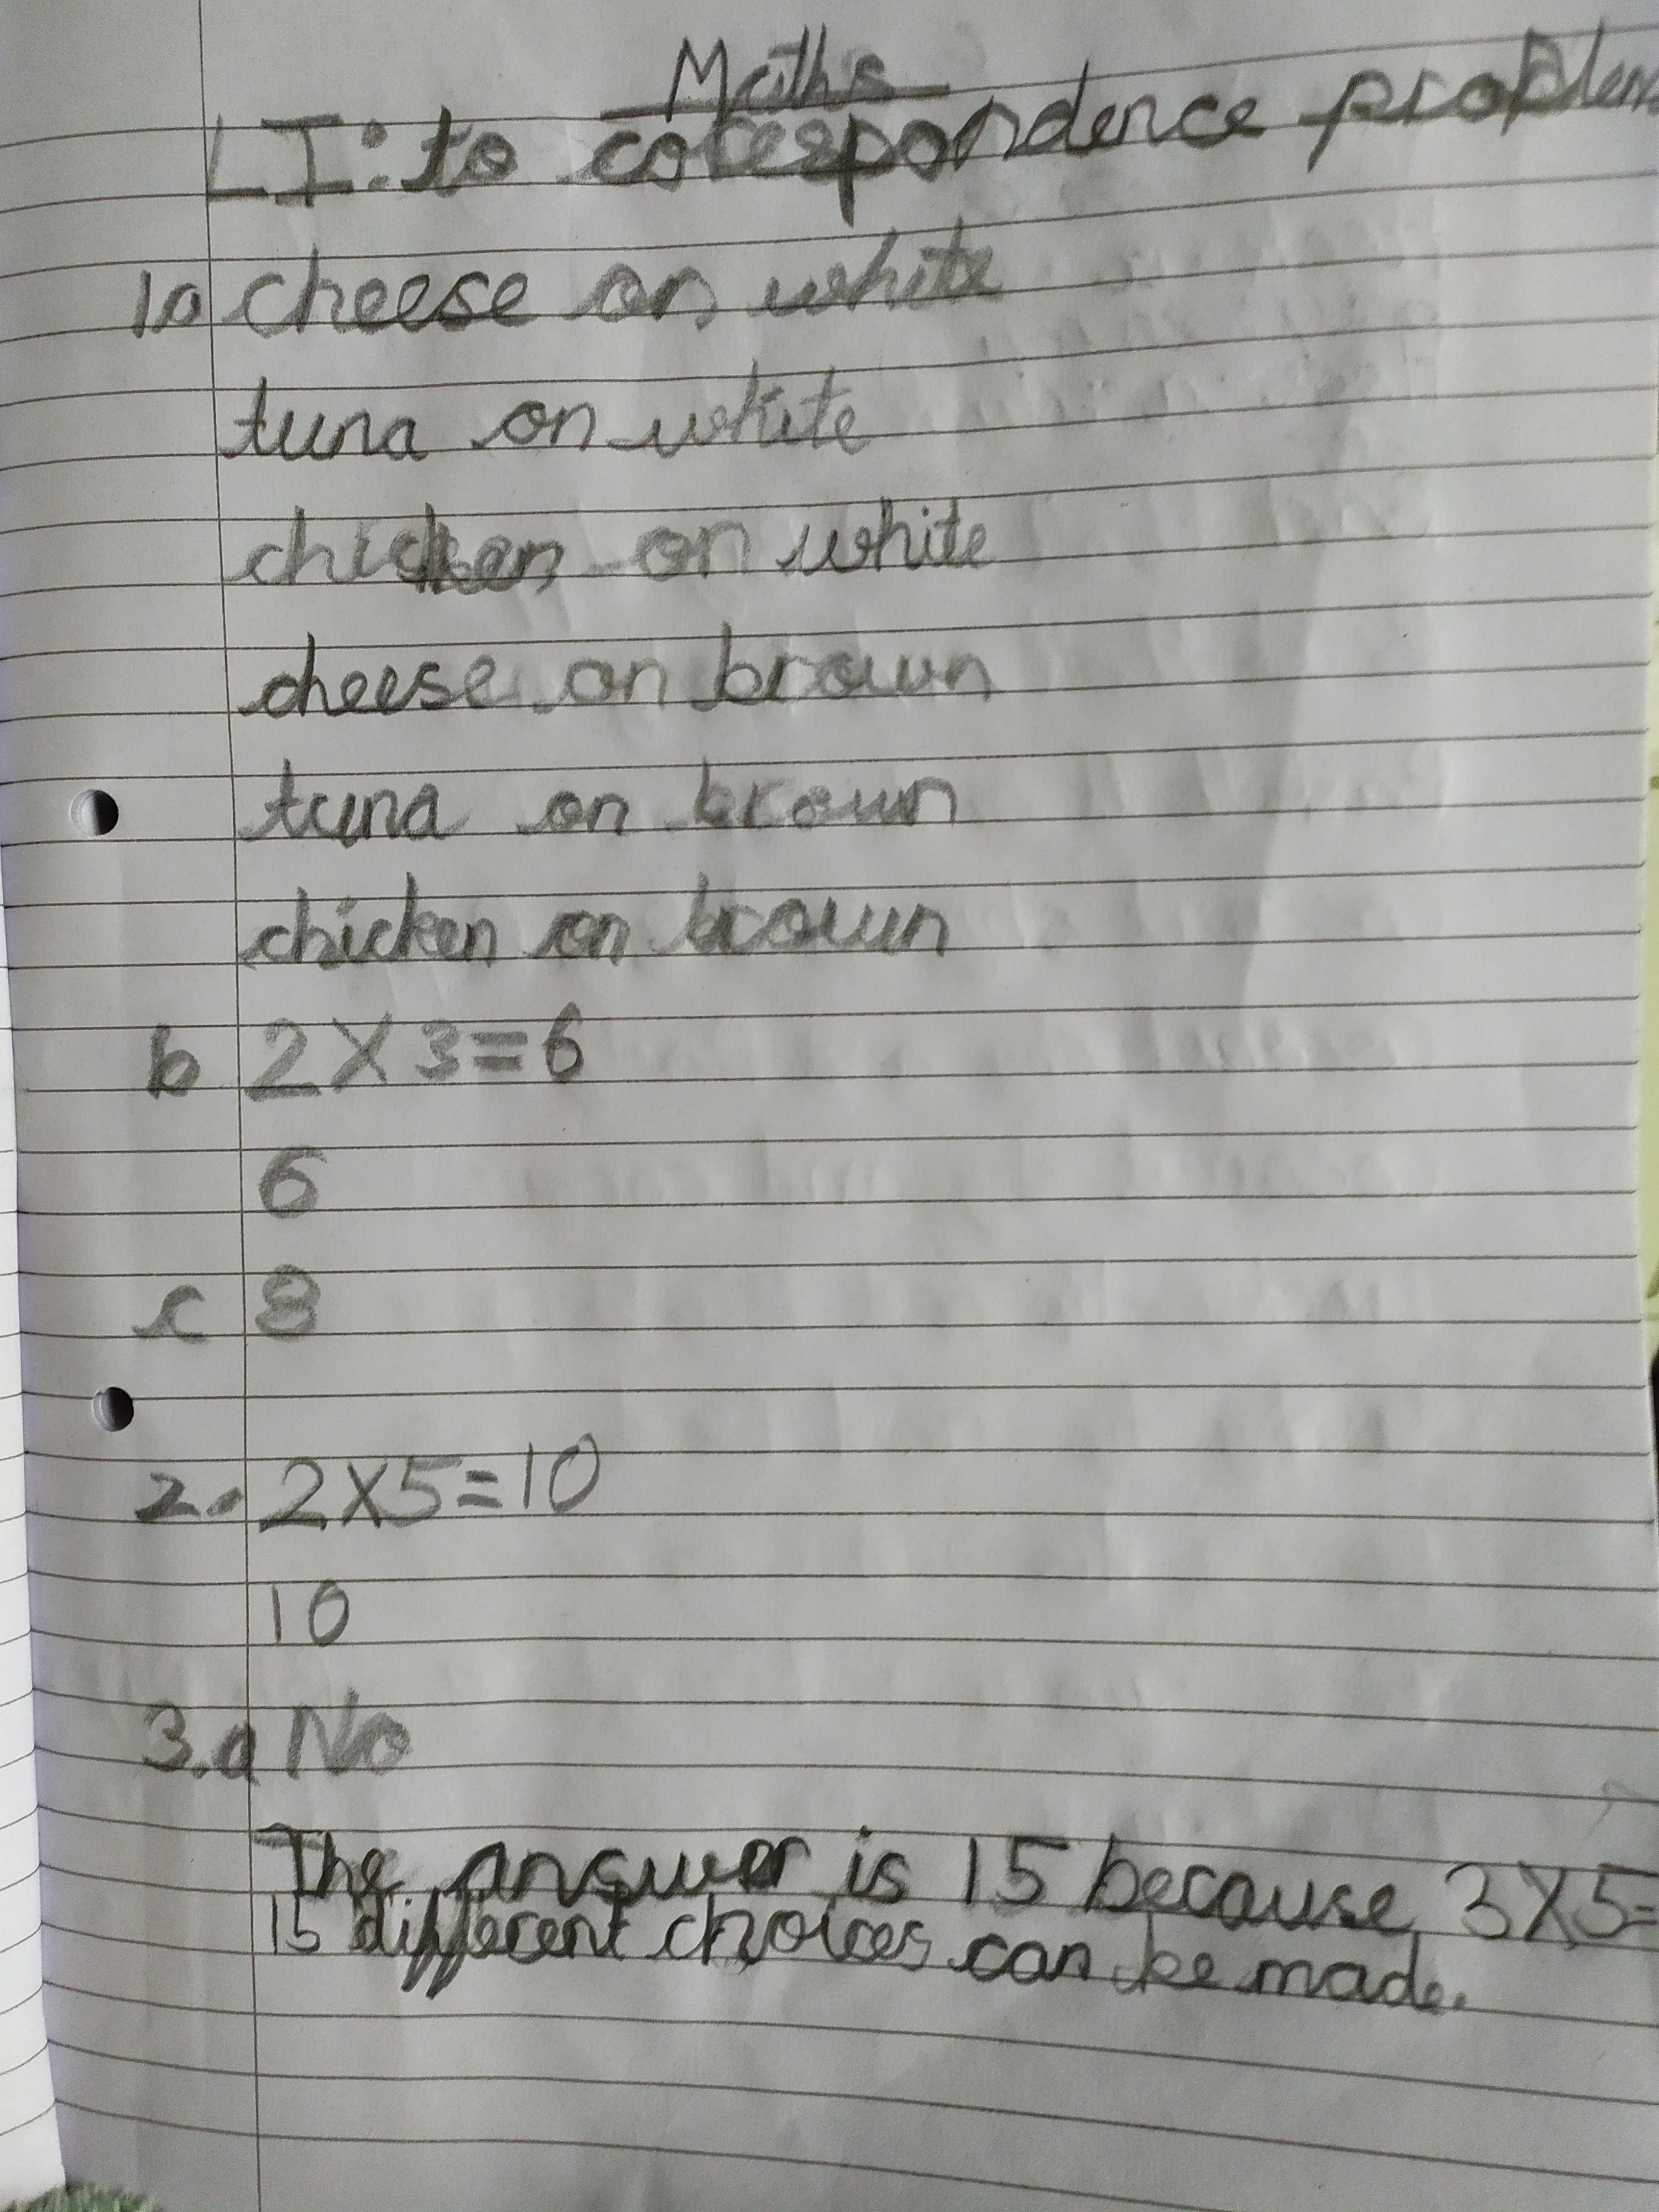 Maths
LI: to corespondence problems
1a cheese on white
tuna on white
chicken on white
cheese on brown
tuna on brown
chicken on brown
b 2 X 3 = 6
6
c 8
2. 2 X 5 = 10
10
3.a No
The answer is 15 because 3 X 5 =
15 different choices can be made.